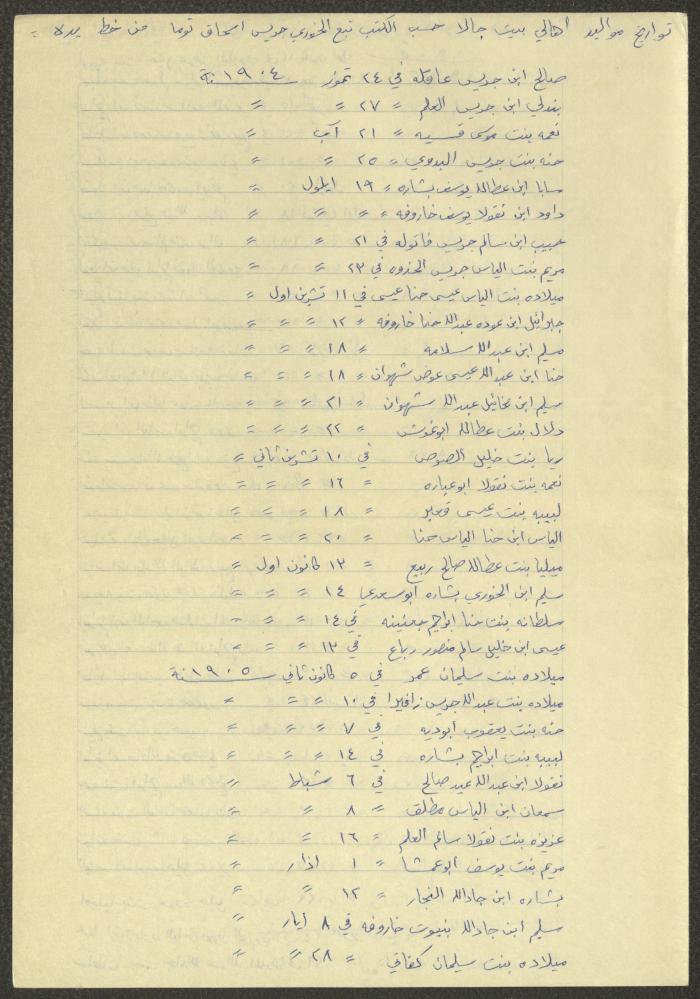 تواريخ مواليد اهالي بيت جالا حسب الكتب تبع الخوري جريس اسحاق توما من خط يده =
صالح ابن جريس عاقله في ٢٤ تموز سنة ١٩٠٤
بندلي ابن جريس العلم = ٢٧ = =
نعمه بنت موسى قسيسه = ٢١ آب =
حنه بنت جريس البدوي = ٢٥ = =
سابا ابن عطالله يوسف بشاره = ١٩ ايلول =
داود ابن نقولا يوسف خاروفه = = = =
حبيب ابن سالم جريس قاتوله في ٢١ = =
مريم بنت الياس جريس الحذوه في ٢٣ = =
ميلاده بنت الياس عيسى حنا عيسى في ١١ تشرين اول =
جبرائيل ابن عوده عبدالله حنا خاروفه = ١٢ = = =
مسلم ابن عبدالله سلامه = ١٨ = = =
حنا ابن عبدالله عيسى عوض شهوان = ١٨ = = =
سليم ابن مخائيل عبدالله شهوان = ٢١ = = =
دلال بنت عطالله ابوغوش = ٢٢ = = =
ريا بنت خليل الصوص في ١٠ تشرين ثاني =
نعمه بنت نقولا ابوعياره = ١٦ = = =
لبيبه بنت عيسى قمبر = ١٨ = = =
الياس ابن حنا الياس حنا = ٢٠ = = =
ميليا بنت عطالله صالح ربيع = ١٣ كانون اول =
سليم ابن الخوري بشاره ابوسعدى ١٤ = = =
سلطانه بنت حنا ابراهيم جعنينه في ١٤ = = =
عيسى ابن خليل سالم منصور رباع في ١٣ = = =
ميلاده بنت سليمان عمد في ٥ كانون ثاني سنة ١٩٠٥
ميلاده بنت عبدالله جريس زافيرا في ١٠ = = =
حنه بنت يعقوب ابوديه في ٧ = = =
لبيبه بنت ابراهيم بشاره في ١٤ = = =
نقولا ابن عبدالله عيد صالح في ٦ شباط =
سمعان ابن الياس مطلق = ٨ = =
عزيزه بنت نقولا سالم العلم = ١٦ = =
مريم بنت يوسف ابوعمشا = ١ اذار =
بشاره ابن جادالله النجار = ١٢ = =
سليم ابن جادالله بنيوت خاروفه في ٨ ايار =
ميلاده بنت سليمان كنفاني = ٢٨ = =